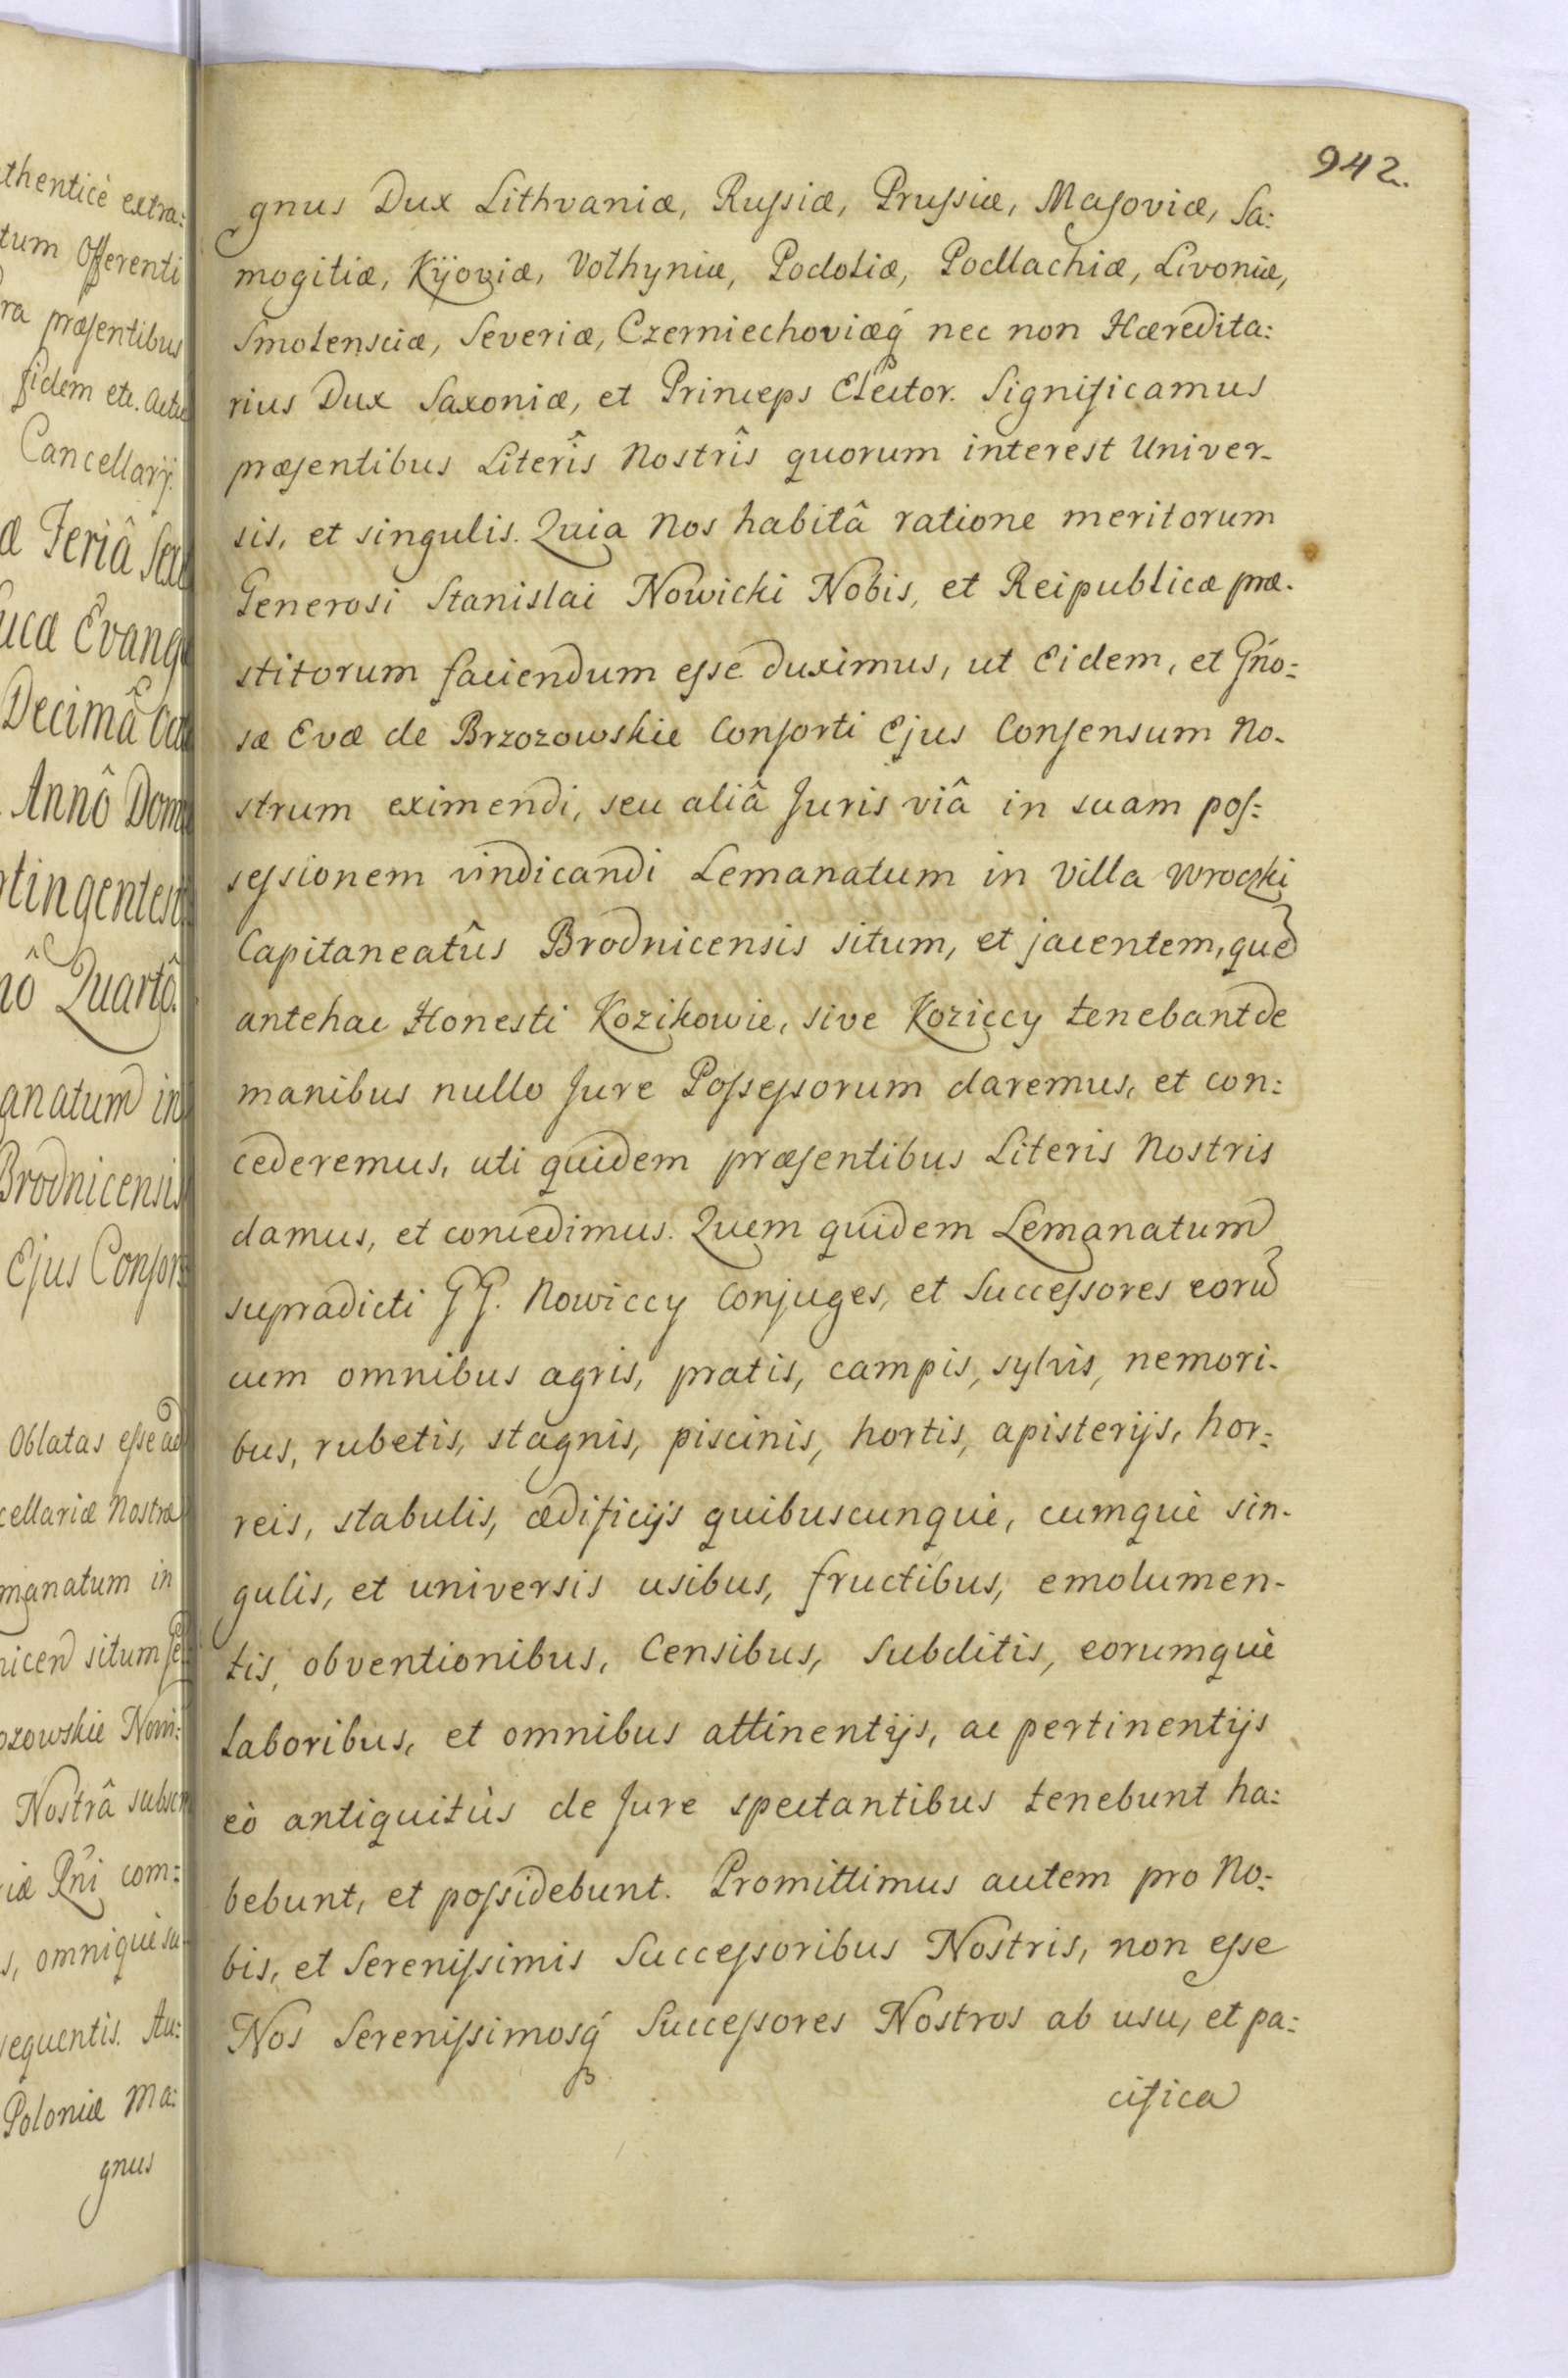 942.
gnus Dux Lithvaniæ, Russiæ, Prussiæ, Masoviæ, Sa:
mogitiæ, Kijoviæ, Volhyniæ, Podoliæ, Podlachiæ, Livoniæ,
Smolensciæ, Severiæ, Czerniechoviæq́ nec non Hæredita:
rius Dux Saxoniæ, et Princeps Elector. Significamus
præsentibus Literîs Nostrîs quorum interest Univer-
sis, et singulis. Quia Nos habitâ ratione meritorum
Generosi Stanislai Nowicki Nobis, et Reipublicæ præ-
stitorum faciendum esse duximus, ut Eidem, et Gńo:
sæ Evæ de Brzozowskie Consorti Ejus Consensum No-
strum eximendi, seu aliâ Juris viâ in suam pos:
sessionem vindicandi Lemanatum in Villa Wroczki
Capitaneatûs Brodnicensis situm, et jacentem, quẽ
antehac Honesti Kozikowie, sive Koziccy tenebant de
manibus nullo Jure Possessorum daremus, et con:
cederemus, uti quidem præsentibus Literis Nostris
damus, et concedimus. Quem quidem Lemanatum
supradicti GG. Nowiccy Conjuges, et Successores eorũ
cum omnibus agris, pratis, campis, sylvis, nemori-
bus, rubetis, stagnis, piscinis, hortis, apisterijs, hor:
reis, stabulis, ædificijs quibuscunquè, cumquè sin-
gulis, et universis usibus, fructibus, emolumen-
tis, obventionibus, Censibus, Subditis, eorumquè
laboribus, et omnibus attinentijs, ac pertinentijs
eò antiquitùs de Jure spectantibus tenebunt ha:
bebunt, et possidebunt. Promittimus autem pro No:
bis, et Serenissimis Successoribus Nostris, non esse
Nos Serenissimosq́ Successores Nostros ab usu, et pa:
cifica
thenticè extra:
tum Offerenti
ra præsentibus
fidem etc. Actu
Cancellarij.
æ Feriâ Sex
ucæ Evang
Decimâ Oct
Annô Dom
tingentes
nô Quartô.
anatum in
Brodnicensis
Ejus Consor
Oblatas esse ad
cellariæ Nostræ
manatum in
nicen situm Ge
ozowskie Nowi:
Nostrâ subscr
iæ Rńi com:
s, omniquè su
sequentis. Au:
Poloniæ Ma:
gnus